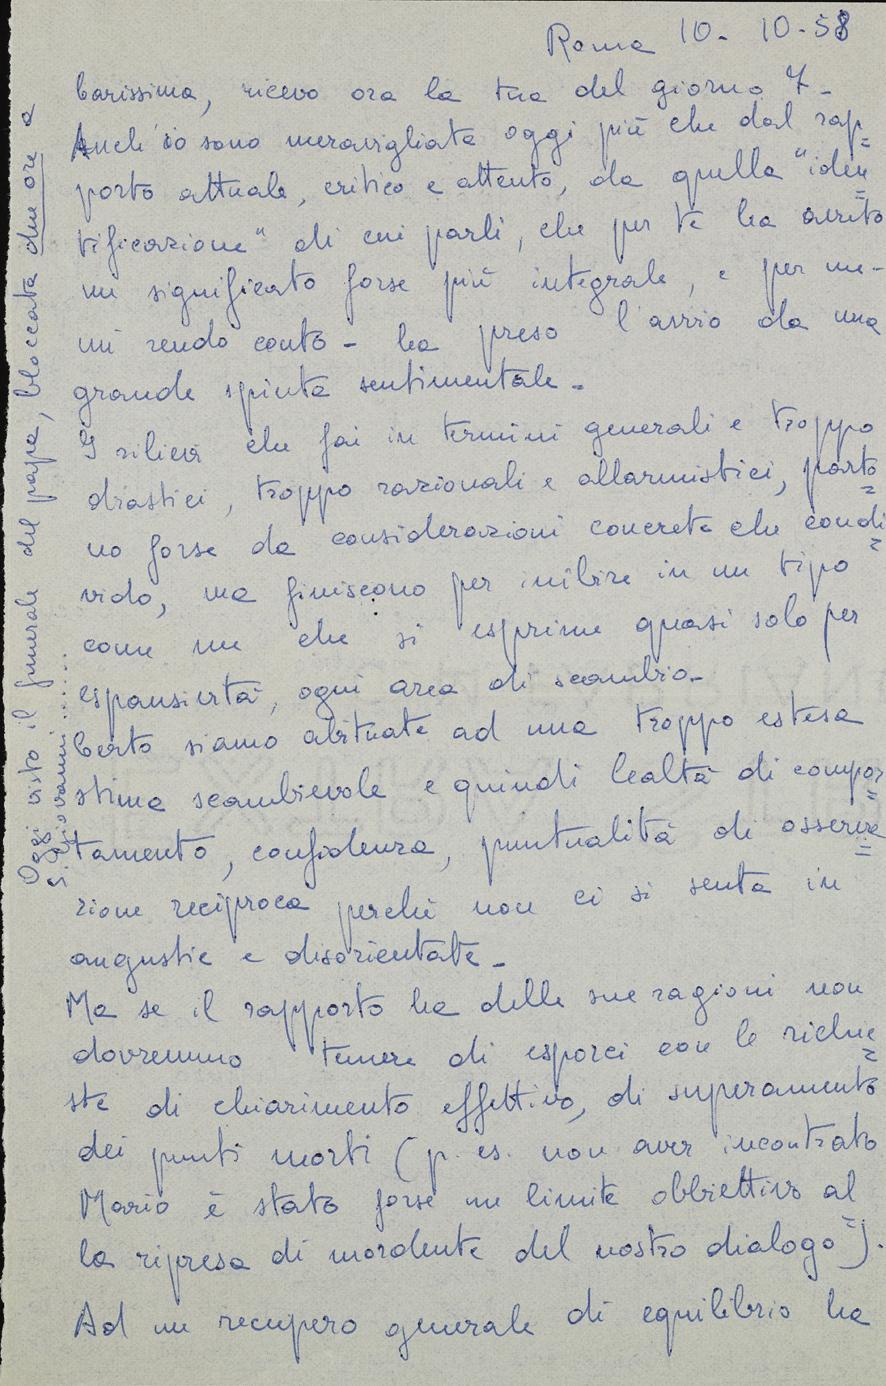 Roma 10-10-58
Carissima, ricevo ora la tua del giorno 7-
Anch'io sono meravigliata oggi più che dal rap=
porto attuale, critico e attento, da quella "iden=
tificazione" di cui parli, che per te ha avuto
un significato forse più integrale, e per me-
mi rendo conto- ha preso l'avvio da una
grande spinta sentimentale-
I rilievi che fai in termini generali e troppo
drastici, troppo razionali e allarmistici, parto=
no forse da considerazioni concrete che condi=
vido, ma finiscono per inibire in un tipo
come me che si esprime quasi solo per
espansività, ogni area di scambio-
Certo siamo abituate ad una troppo estesa
stima scambievole e quindi lealtà di compor=
tamento, confidenza, puntualità di osserva=
zione reciproca perché non ci si senta in
angustie e disorientate-
Ma se il rapporto ha delle sue ragioni non
dovremmo temere di esporci con le richie=
ste di chiarimento effettivo, di superamento
dei punti morti (p. es. non aver incontrato
Mario è stato forse un limite obbiettivo al=
la ripresa di mordente del nostro dialogo").
Ad un recupero generale di equilibrio ha
Oggi visto il funerale del papa, bloccata due ore a
S. Giovanni......